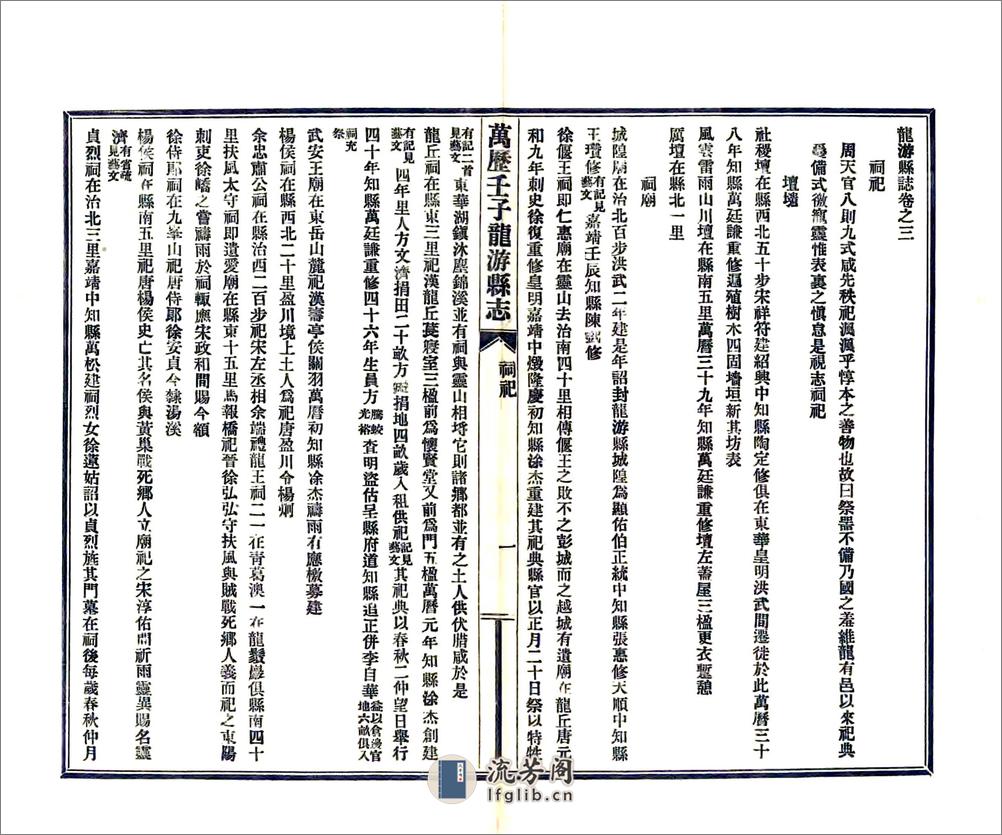 龍游縣誌卷之三
祠祀
周天官八則九式咸先秩祀渢渢乎惇本之善物也故曰祭器不備乃國之羞維龍有邑以來祀典
爲備式徼寵靈惟表裏之愼怠是視志祠祀
壇壝
社稷壇在縣西北五十步宋祥符建紹興中知縣陶定修俱在東華皇明洪武間遷徙於此萬曆三十
八年知縣萬廷謙重修遍殖樹木四固墻垣新其坊表
風雲雷雨山川壇在縣南五里萬曆三十九年知縣萬廷謙重修壇左蓋屋三楹更衣暫憩
厲壇在縣北一里
祠廟
城隍廟在治北百步洪武二年建是年詔封龍游縣城隍爲顯佑伯正統中知縣張惠修天順中知縣
王瓚修有記見藝文嘉靖壬辰知縣陳鉞修
徐偃王祠即仁惠廟在靈山去治南四十里相傳偃王之敗不之彭城而之越城有遺廟在龍丘唐元
和九年刺史徐復重修皇明嘉靖中燬隆慶初知縣涂杰重建其祀典縣官以正月二十日祭以特牲
萬歷壬子龍游縣志
祠祀
一
有記二首見藝文東華湖鎮沐塵錦溪並有祠與靈山相埓它則諸鄉都並有之土人供伏腊咸於是
龍丘祠在縣東三里祀漢龍丘萇寢室三楹前爲懷賢堂又前爲門五楹萬曆元年知縣涂杰創建
有記見藝文四年里人方文濟捐田二十畝方捐地四畝歲入租供祀記見藝文其祀典以春秋二仲望日舉行
四十年知縣萬廷謙重修四十六年生員方騰蛟光裕查明盜佔呈縣府道知縣追正併李自華益以倉後官地六畝俱入
祠充祭
武安王廟在東岳山麓祀漢壽亭侯關羽萬曆初知縣涂杰禱雨有應檄募建
楊侯祠在縣西北二十里盈川境上土人爲祀唐盈川令楊炯
余忠肅公祠在縣治西二百步祀宋左丞相余端禮龍王祠二一在靑葛澳一在龍鬚巖俱縣南四十
里扶風太守祠即遺愛廟在縣東十五里馬報橋祀晉徐弘弘守扶風與賊戰死鄉人義而祀之東陽
刺吏徐嶠之嘗禱雨於祠輒應宋政和間賜今額
徐侍郎祠在九峯山祀唐侍郞徐安貞今隸湯溪
楊侯祠在縣南五里祀唐楊侯史亡其名侯與黃巢戰死鄉人立廟祀之宋淳佑間祈雨靈異賜名靈
濟有省疏見藝文
貞烈祠在治北三里嘉靖中知縣萬松建祠烈女徐遠姑詔以貞烈旌其門墓在祠後每歲春秋仲月
流芳阁
lfglib.cn